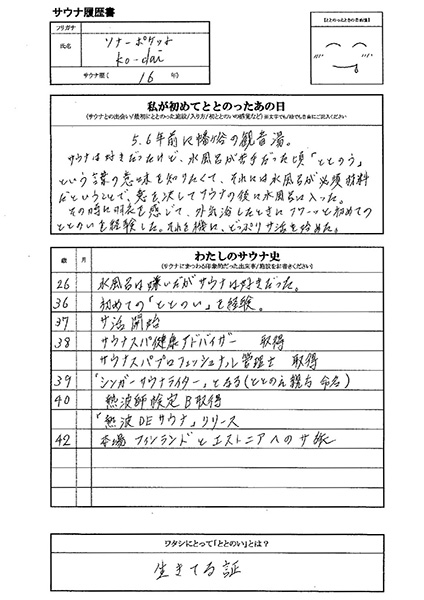 サウナ履歴書
フリガナ
氏名
ソナーポケット
ko-dai
サウナ歴( 16 年)
【ととのったときのお顔】
私が初めてととのったあの日
5.6年前に幡ヶ谷の観音湯。
サウナは好きだったけど、水風呂が苦手だった頃「ととのう」
という言葉の意味を知りたくて、それには水風呂が必須材料
だということで、意を決してサウナの後に水風呂に入った。
その時に羽衣を感じて、外気浴したときにフワーッと初めての
ととのいを経験した。それを機に、どっぷりサ活を始めた。
わたしのサウナ史
(サウナにまつわる印象的だった出来事/施設をお書きください)
歳 月
26 水風呂は嫌いだがサウナは好きだった。
36 初めての「ととのい」を経験。
37 サ活開始
38 サウナスパ健康アドバイザー 取得
サウナスパプロフェッショナル管理士 取得
39 「シンガーサウナライター」となる(ととのえ親方 命名)
40 熱波師検定B取得
「熱波DEサウナ」リリース
42 本場フィンランドとエストニアへのサ旅
ワタシにとって「ととのい」とは?
生きてる証